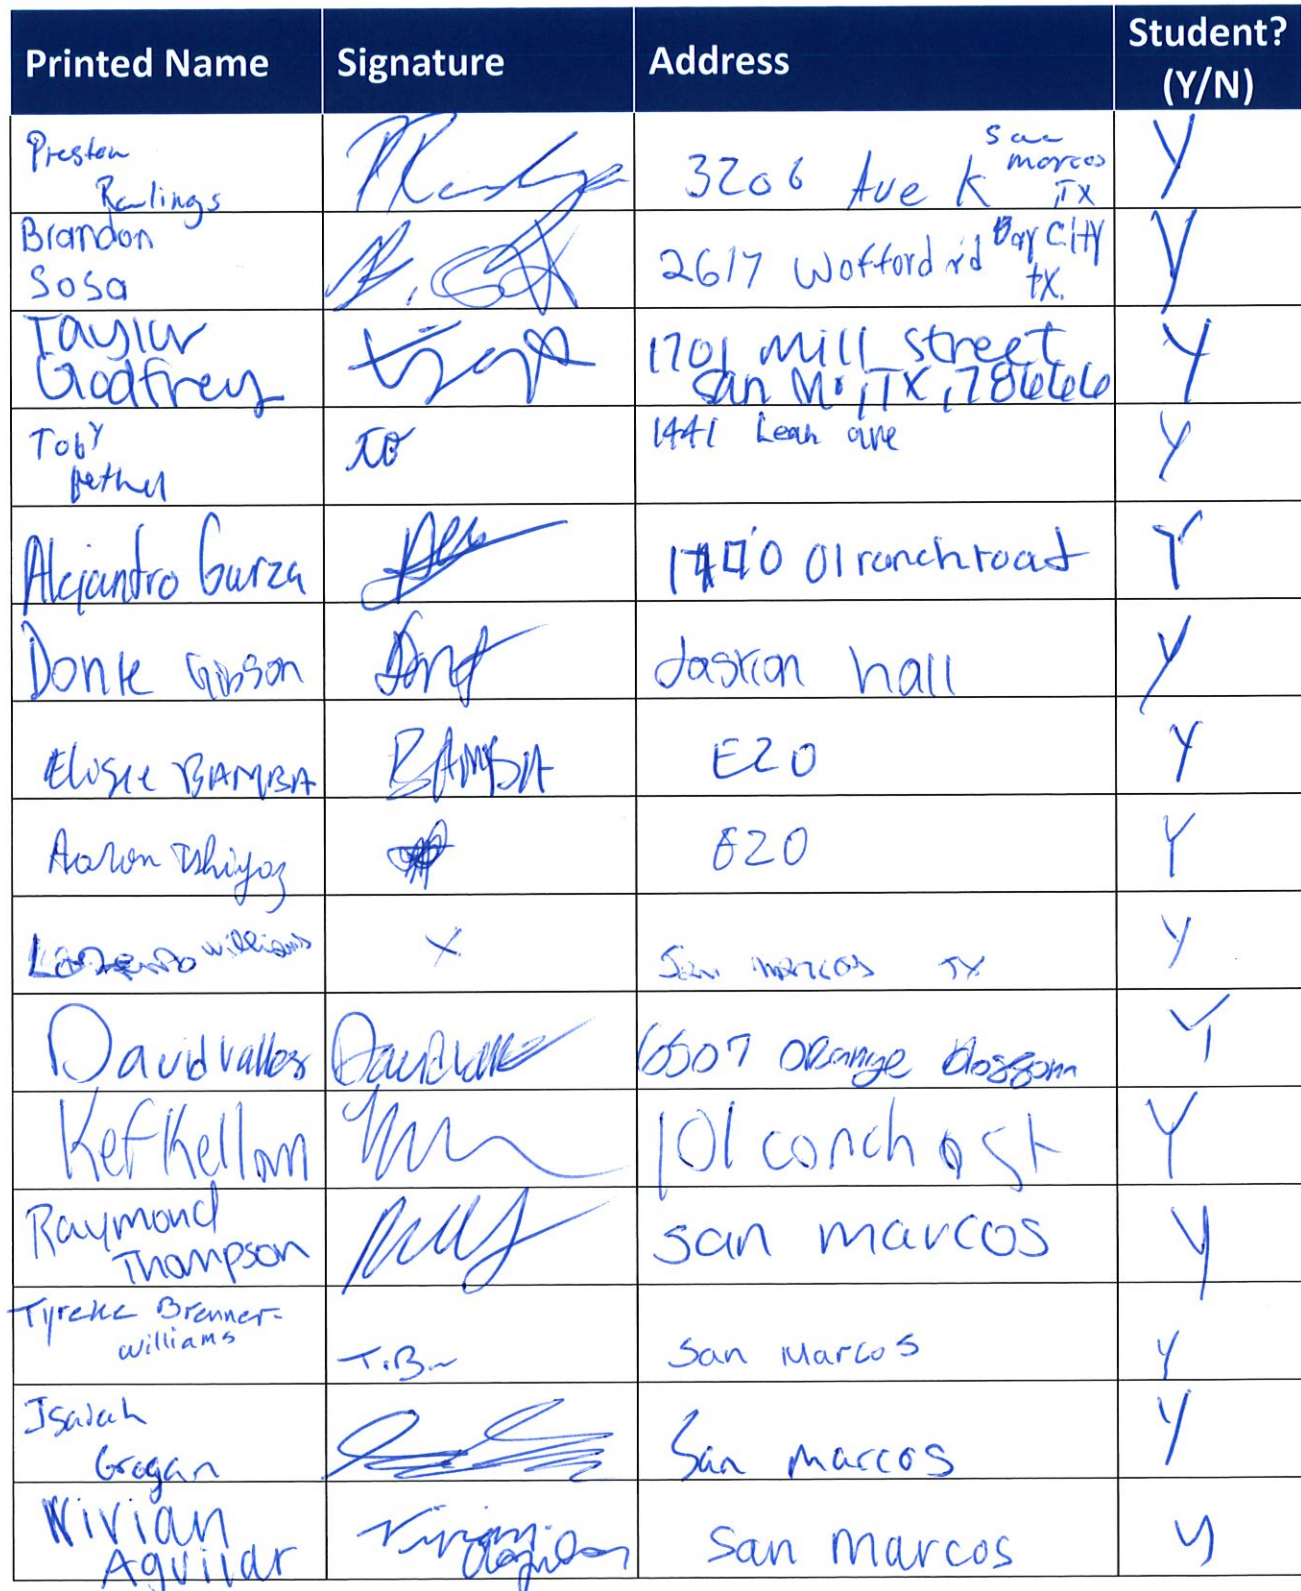 Printed Name Signature Address Student? (Y/N)
Preston Rawlings 3206 Ave K San Marcos TX Y
Brandon Sosa B. 2617 Wofford rd Bay City TX. Y
Taylor Godfrey 1701 Mill Street San M., TX, 78666 Y
Toby Bethel TB 1441 Leah ave Y
Alejandro Garza Ol ranch road Y
Donte Gibson hall Y
BAMBA BAMBA E20 Y
Aaron E20 Y
Williams X San Marcos TX Y
David Valles David Valles 6507 Orange Blossom Y
Kef Kellam 101 concho st Y
Raymond Thompson San Marcos Y
Tyreke Brenner-Williams T.B. San Marcos Y
Isaiah Grogan San Marcos Y
Vivian Aguilar Vivian Aguilar San Marcos Y